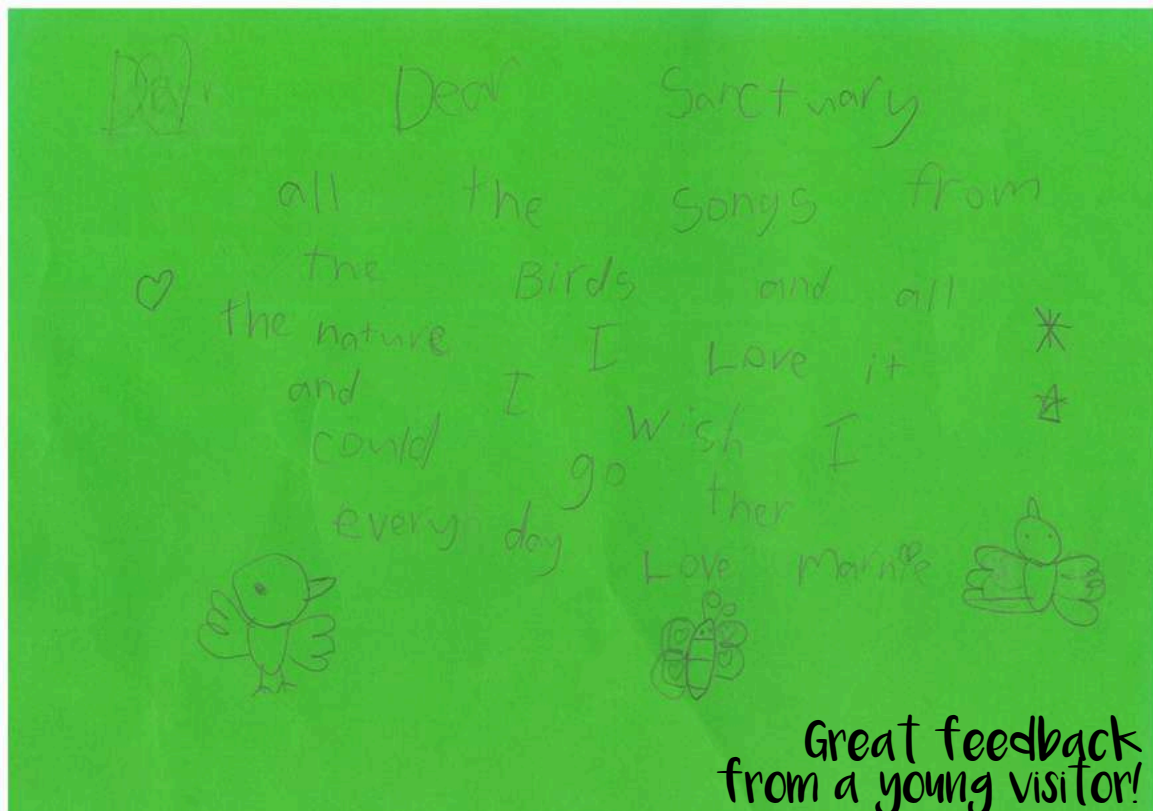 Dear Dear Sanctuary
all the songs from
the Birds and all
the nature I Love it
and I wish I
could go ther
every day
Love Marnie
Great feedback
from a young visitor!